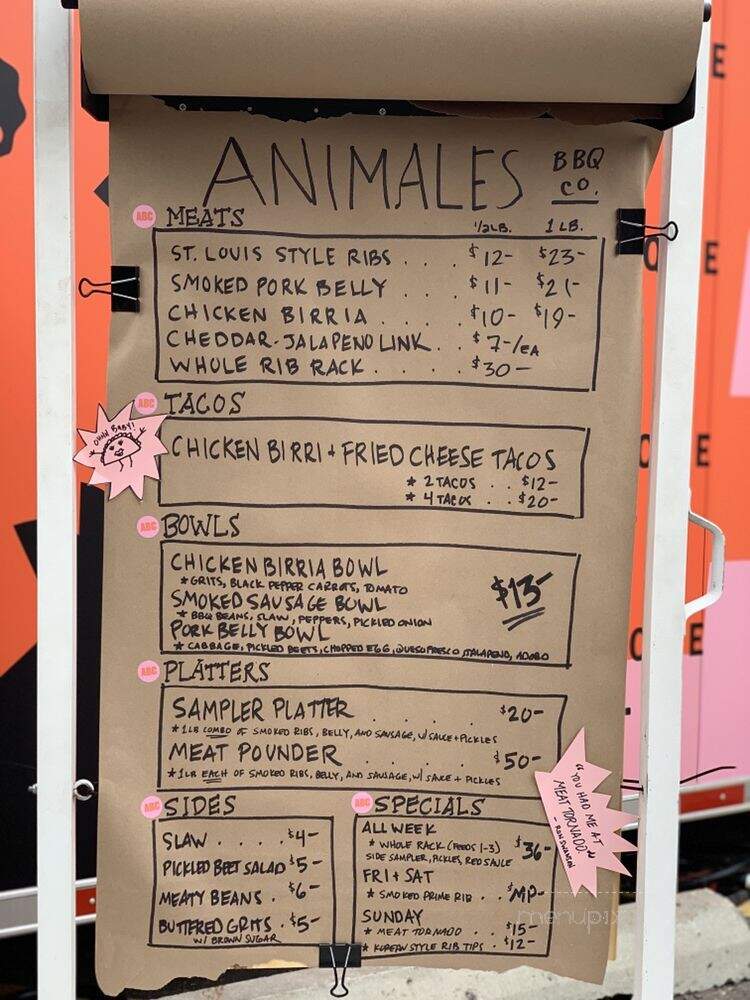 ANIMALES BBQ CO.
ABC MEATS 1/2 LB. 1 LB.
ST. LOUIS STYLE RIBS . . . $12- $23-
SMOKED PORK BELLY . . . $11- $21-
CHICKEN BIRRIA . . . . . $10- $19-
CHEDDAR-JALAPENO LINK . . $7-/EA
WHOLE RIB RACK . . . . . $30-
ABC TACOS
OHHH BABY!
CHICKEN BIRRI + FRIED CHEESE TACOS
* 2 TACOS . . $12-
* 4 TACOS . . $20-
ABC BOWLS
CHICKEN BIRRIA BOWL
* GRITS, BLACK PEPPER CARROTS, TOMATO
$13-
SMOKED SAUSAGE BOWL
* BBQ BEANS, SLAW, PEPPERS, PICKLED ONION
PORK BELLY BOWL
* CABBAGE, PICKLED BEETS, CHOPPED EGG, QUESO FRESCO, JALAPENO, ADOBO
ABC PLATTERS
SAMPLER PLATTER . . . . . $20-
* 1 LB COMBO OF SMOKED RIBS, BELLY, AND SAUSAGE, W/ SAUCE + PICKLES
MEAT POUNDER . . . . . $50-
* 1 LB EACH OF SMOKED RIBS, BELLY, AND SAUSAGE, W/ SAUCE + PICKLES
"YOU HAD ME AT
MEAT TORNADO."
- RON SWANSON
ABC SIDES
SLAW . . . . . $4-
PICKLED BEET SALAD $5-
MEATY BEANS . $6-
BUTTERED GRITS . $5-
W/ BROWN SUGAR
ABC SPECIALS
ALL WEEK
* WHOLE RACK (FEEDS 1-3) $36-
SIDE SAMPLER, PICKLES, RED SAUCE
FRI + SAT
* SMOKED PRIME RIB . . $MP-
SUNDAY
* MEAT TORNADO . . $15-
* KOREAN STYLE RIB TIPS . $12-
menupix